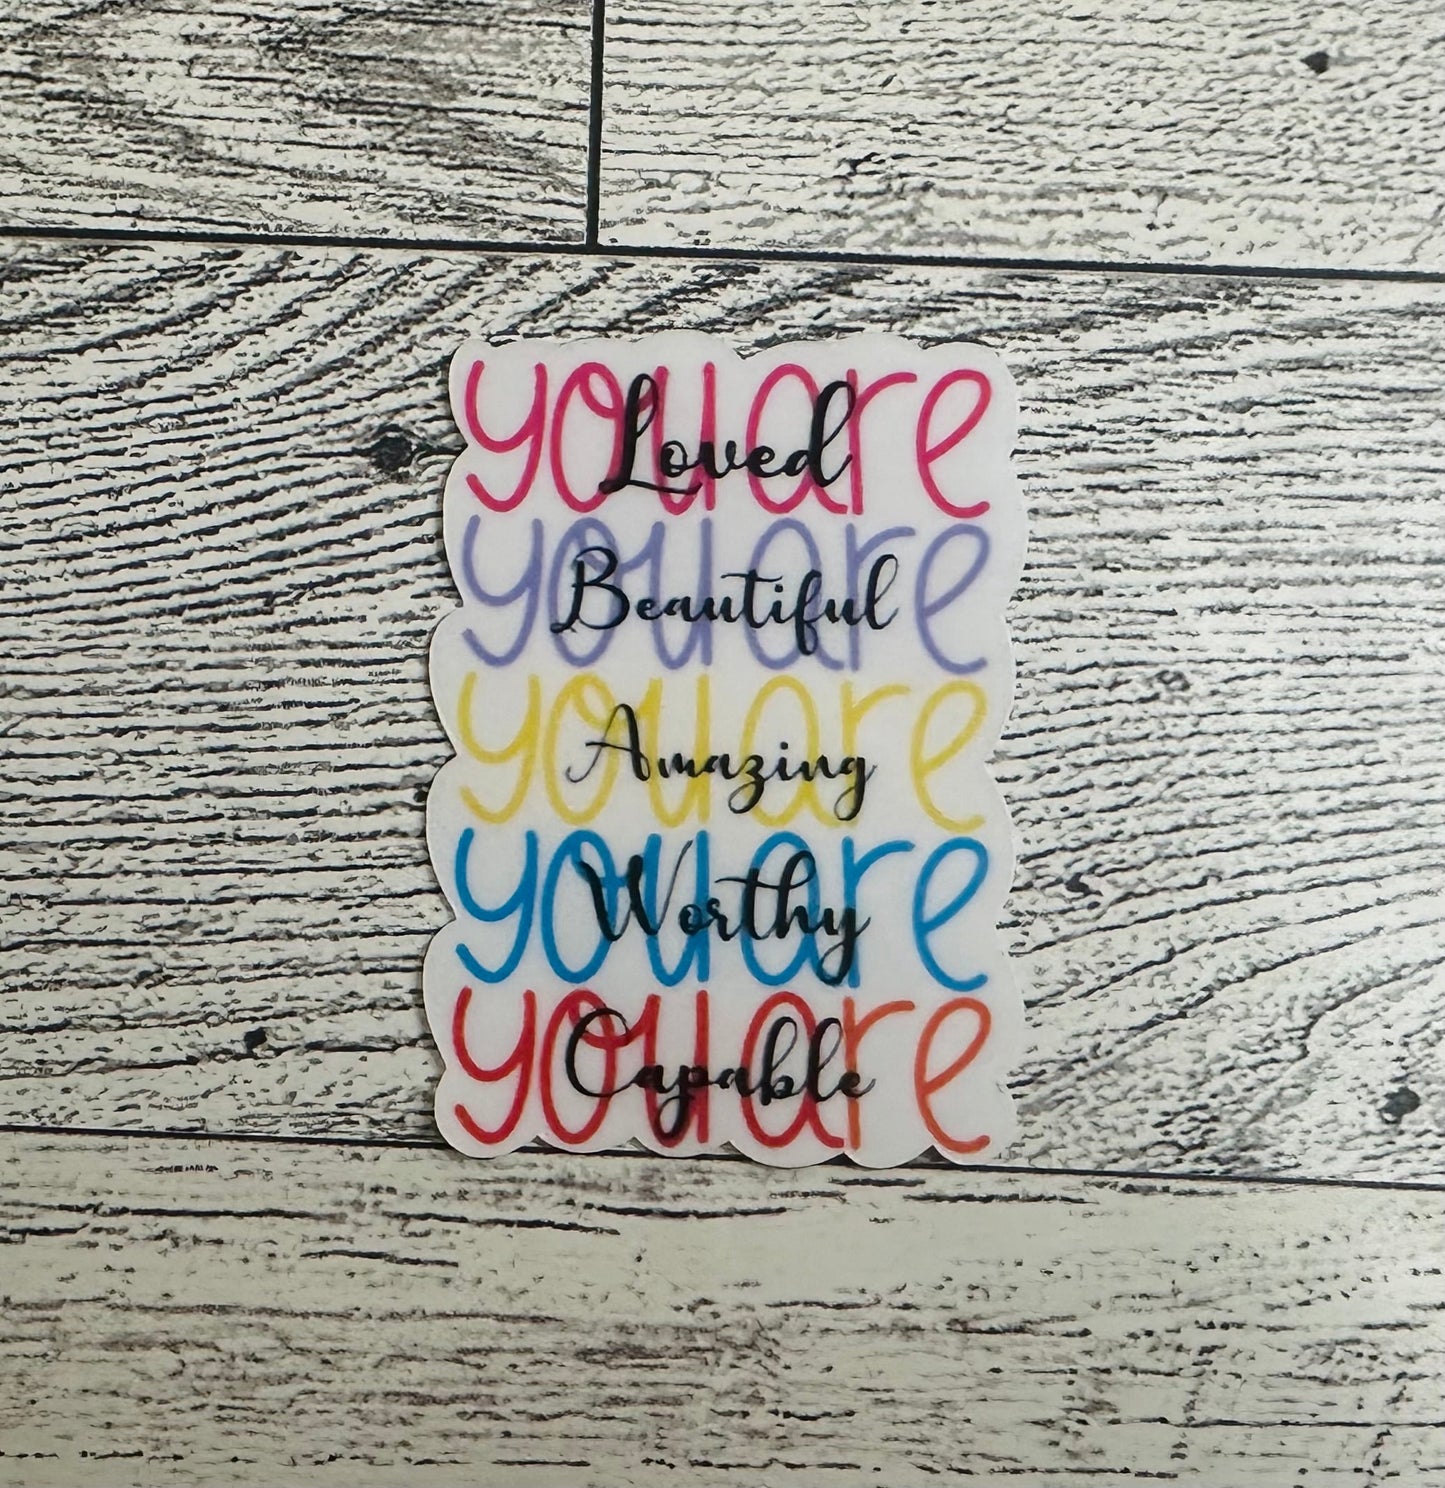 you are
Loved
you are
Beautiful
you are
Amazing
you are
Worthy
you are
Capable